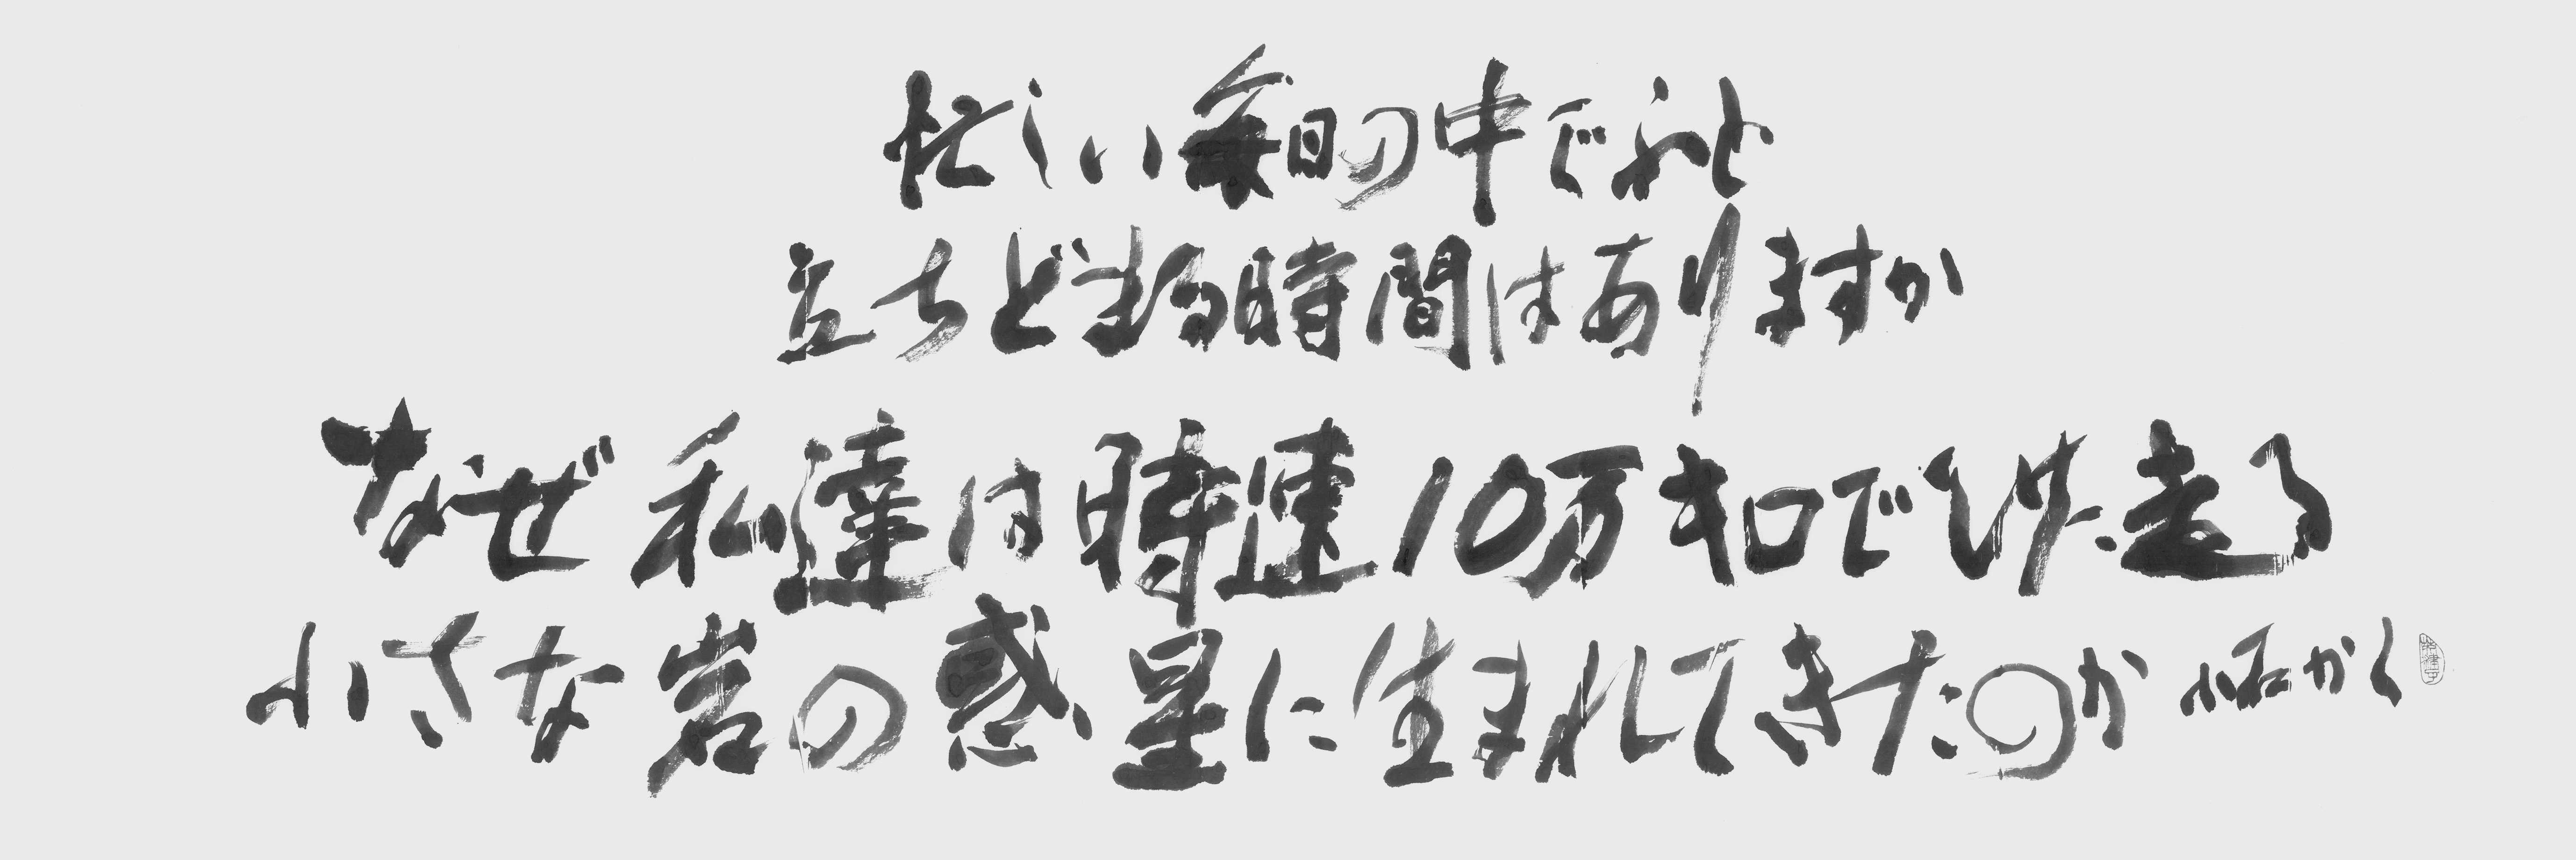 忙しい毎日の中でふと
立ちどまる時間はありますか
なぜ私達は時速10万キロでひた走る
小さな岩の惑星に生まれてきたのか かく